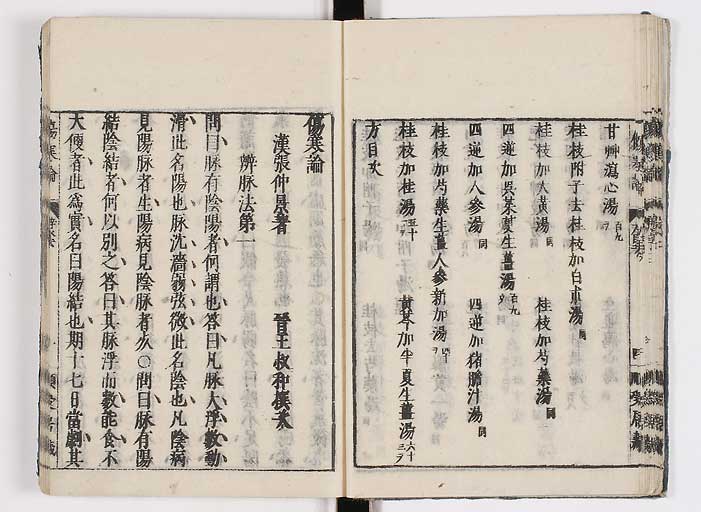 甘艸瀉心湯 百九
桂枝附子去桂枝加白朮湯 同
桂枝加大黄湯 同 桂枝加芍藥湯 同
四逆加吳茱萸生薑湯 百九
四逆加人參湯 同 四逆加猪膽汁湯 同
桂枝加芍藥生薑人參新加湯
桂枝加桂湯 五十 黄芩加半夏生薑湯 六十
方目次
傷寒論
漢張仲景著 晉王叔和撰次
辨脉法第一
問曰脉有陰陽者何謂也答曰凡脉大浮數動
滑此名陽也脉沈濇弱弦微此名陰也凡陰病
見陽脉者生陽病見陰脉者死○問曰脉有陽
結陰結者何以別之答曰其脉浮而數能食不
大便者此爲實名曰陽結也期十七日當劇其
傷寒論